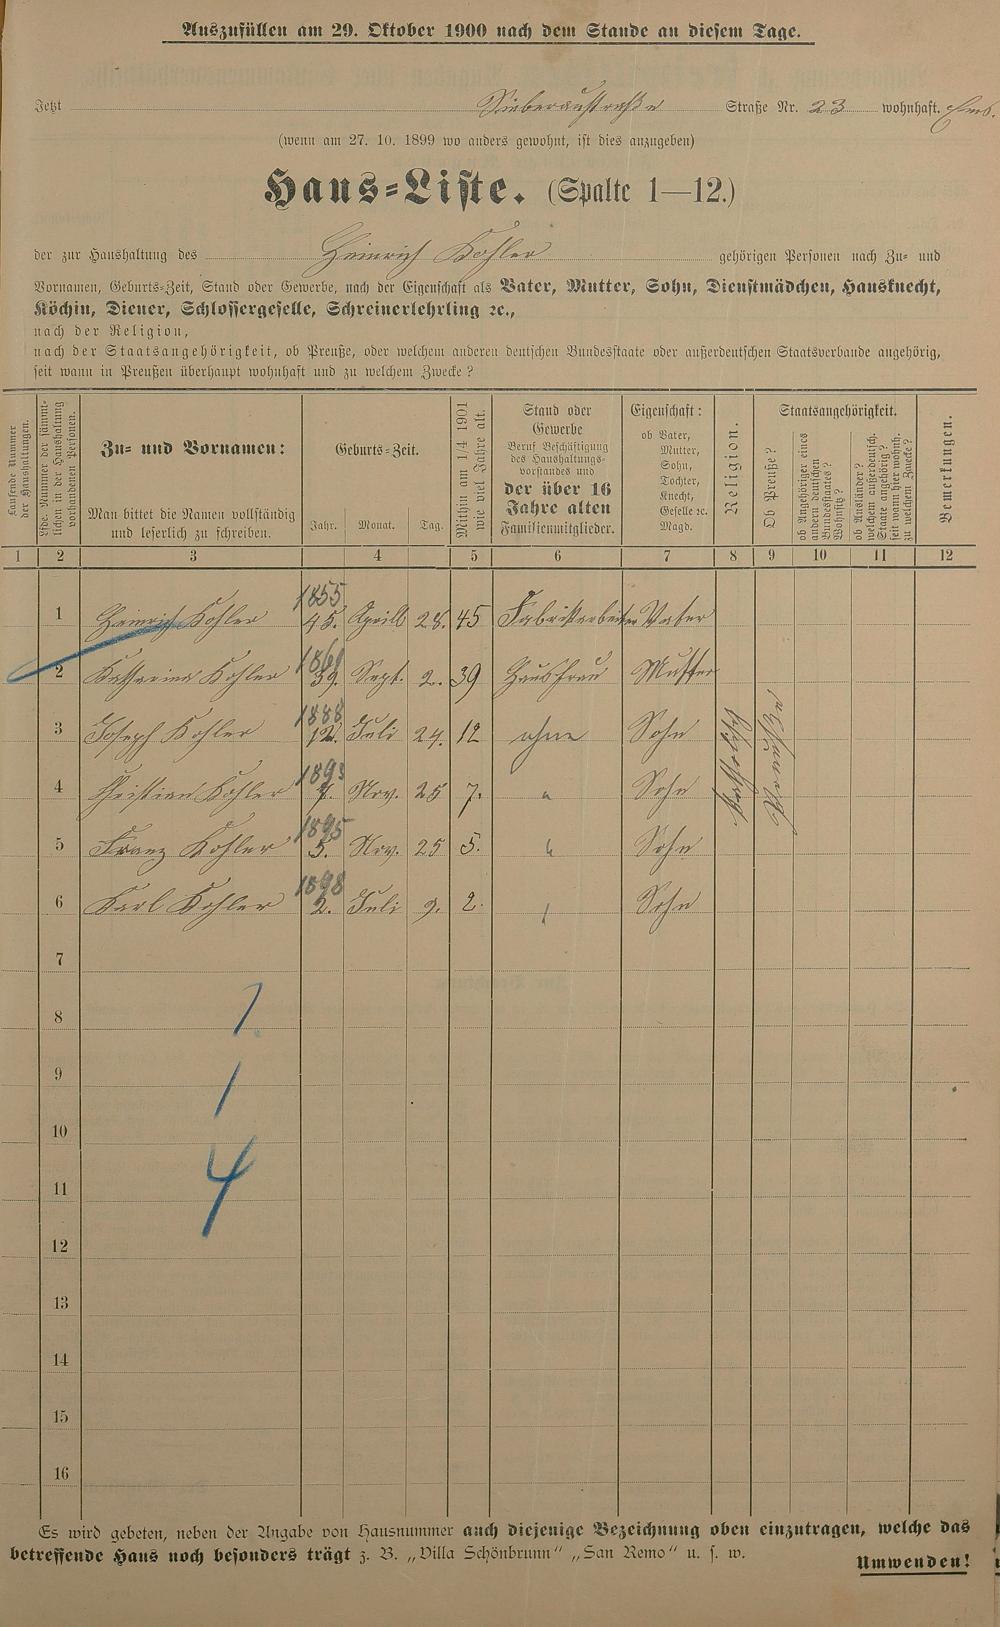 Auszufüllen am 29. Oktober 1900 nach dem Stande an diesem Tage.
Jetzt Straße Nr. 23 wohnhaft. Ems.
(wenn am 27. 10. 1899 wo anders gewohnt, ist dies anzugeben)
Haus-Liste. (Spalte 1—12.)
der zur Haushaltung des Heinrich Kohler gehörigen Personen nach Zu- und
Vornamen, Geburts-Zeit, Stand oder Gewerbe, nach der Eigenschaft als Vater, Mutter, Sohn, Dienstmädchen, Hausknecht,
Köchin, Diener, Schlossergeselle, Schreinerlehrling ꝛc.,
nach der Religion,
nach der Staatsangehörigkeit, ob Preuße, oder welchem anderen deutschen Bundesstaate oder außerdeutschen Staatsverbande angehörig,
seit wann in Preußen überhaupt wohnhaft und zu welchem Zwecke?
Laufende Nummer der Haushaltungen.
Lfde. Nummer der sämmtlichen in der Haushaltung vorhandenen Personen.
Zu- und Vornamen:
Man bittet die Namen vollständig
und leserlich zu schreiben.
Geburts-Zeit.
Jahr. Monat. Tag.
Mithin am 1/4 1901 wie viel Jahre alt.
Stand oder
Gewerbe
Beruf Beschäftigung
des Haushaltungs-
vorstandes und
der über 16
Jahre alten
Familienmitglieder.
Eigenschaft:
ob Vater,
Mutter,
Sohn,
Tochter,
Knecht,
Geselle ꝛc.
Magd.
Religion.
Staatsangehörigkeit.
Ob Preuße?
ob Angehöriger eines andern deutschen Bundesstaates? Wohnsitz?
ob Ausländer? welchem außerdeutsch. Staate angehörig? seit wann hier wohnh. zu welchem Zwecke?
Bemerkungen.
1 2 3 4 5 6 7 8 9 10 11 12
1855
1 Heinrich Kohler 45. Aprill 28. 45 Fabrikarbeiter Vater
1861
2 Katharina Kohler 39. Sept. 2. 39 Hausfrau Mutter
1888
3 Joseph Kohler 12. Juli 24. 12 ohne Sohn
1893
4 Christian Kohler 7. Nov. 25 7. " Sohn
1895
5 Franz Kohler 5. Nov. 25 5. " Sohn
1898
6 Karl Kohler 2. Juli 9. 2. Sohn
7
8 1.
9 1
10
11 4
12
13
14
15
16
Es wird gebeten, neben der Angabe von Hausnummer auch diejenige Bezeichnung oben einzutragen, welche das
betreffende Haus noch besonders trägt z. B. „Villa Schönbrunn" „San Remo" u. s. w.
Umwenden!